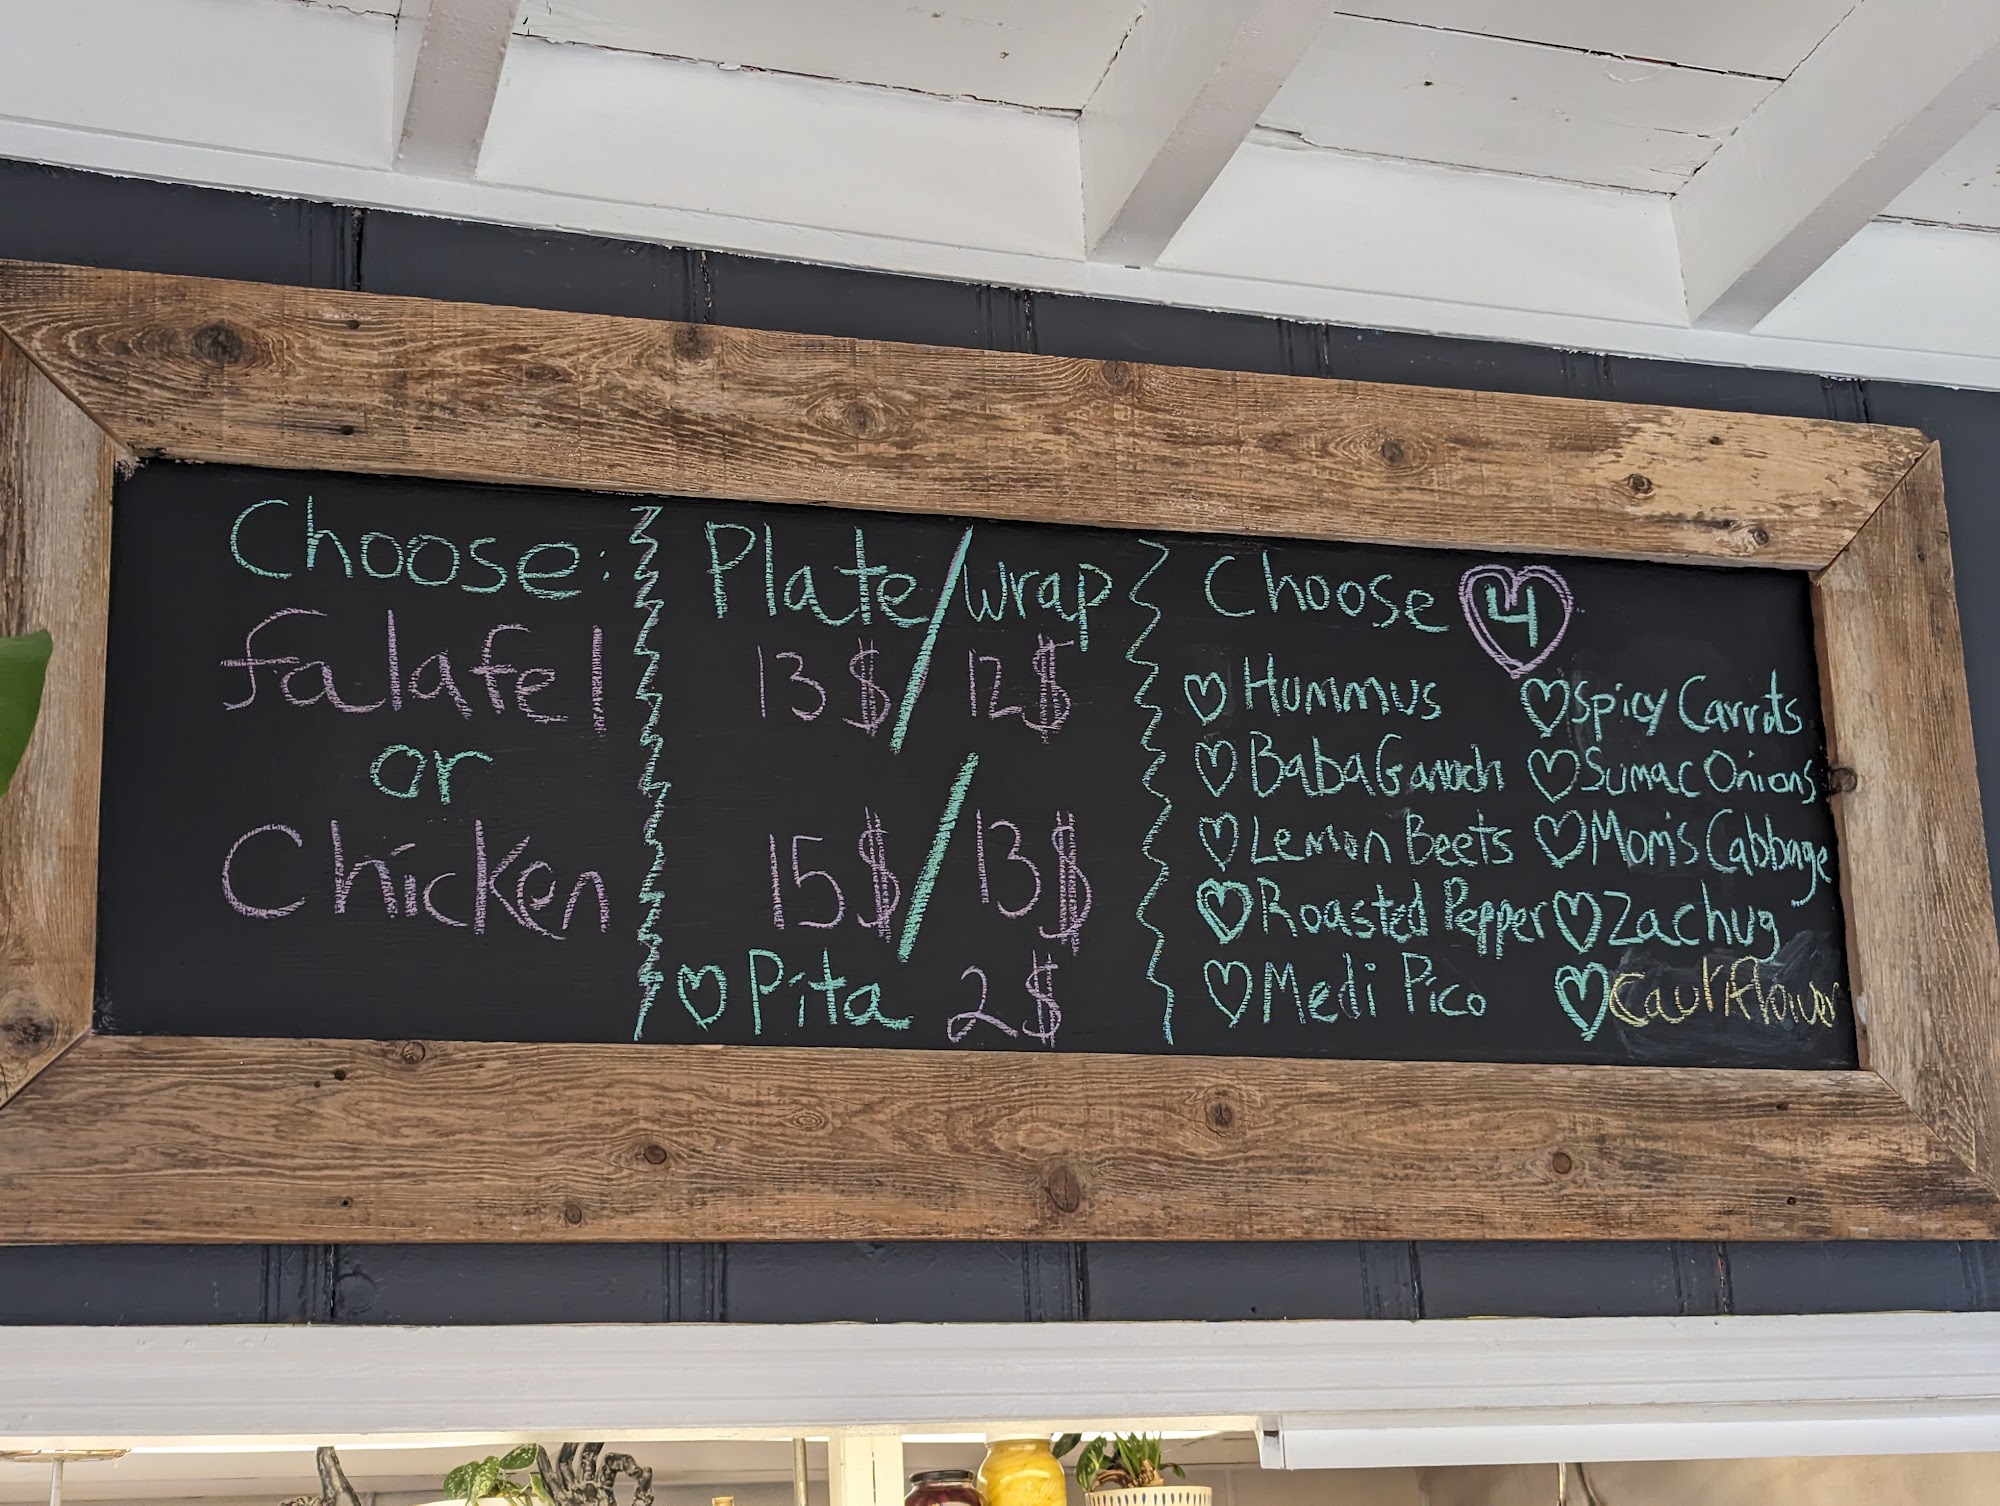 Choose:
falafel
or
Chicken
Plate/wrap
13$/12$
15$/13$
Pita 2$
Choose 4
Hummus
Baba Ganuch
Lemon Beets
Roasted Pepper
Medi Pico
Spicy Carrots
Sumac Onions
Mom's Cabbage
Zachug